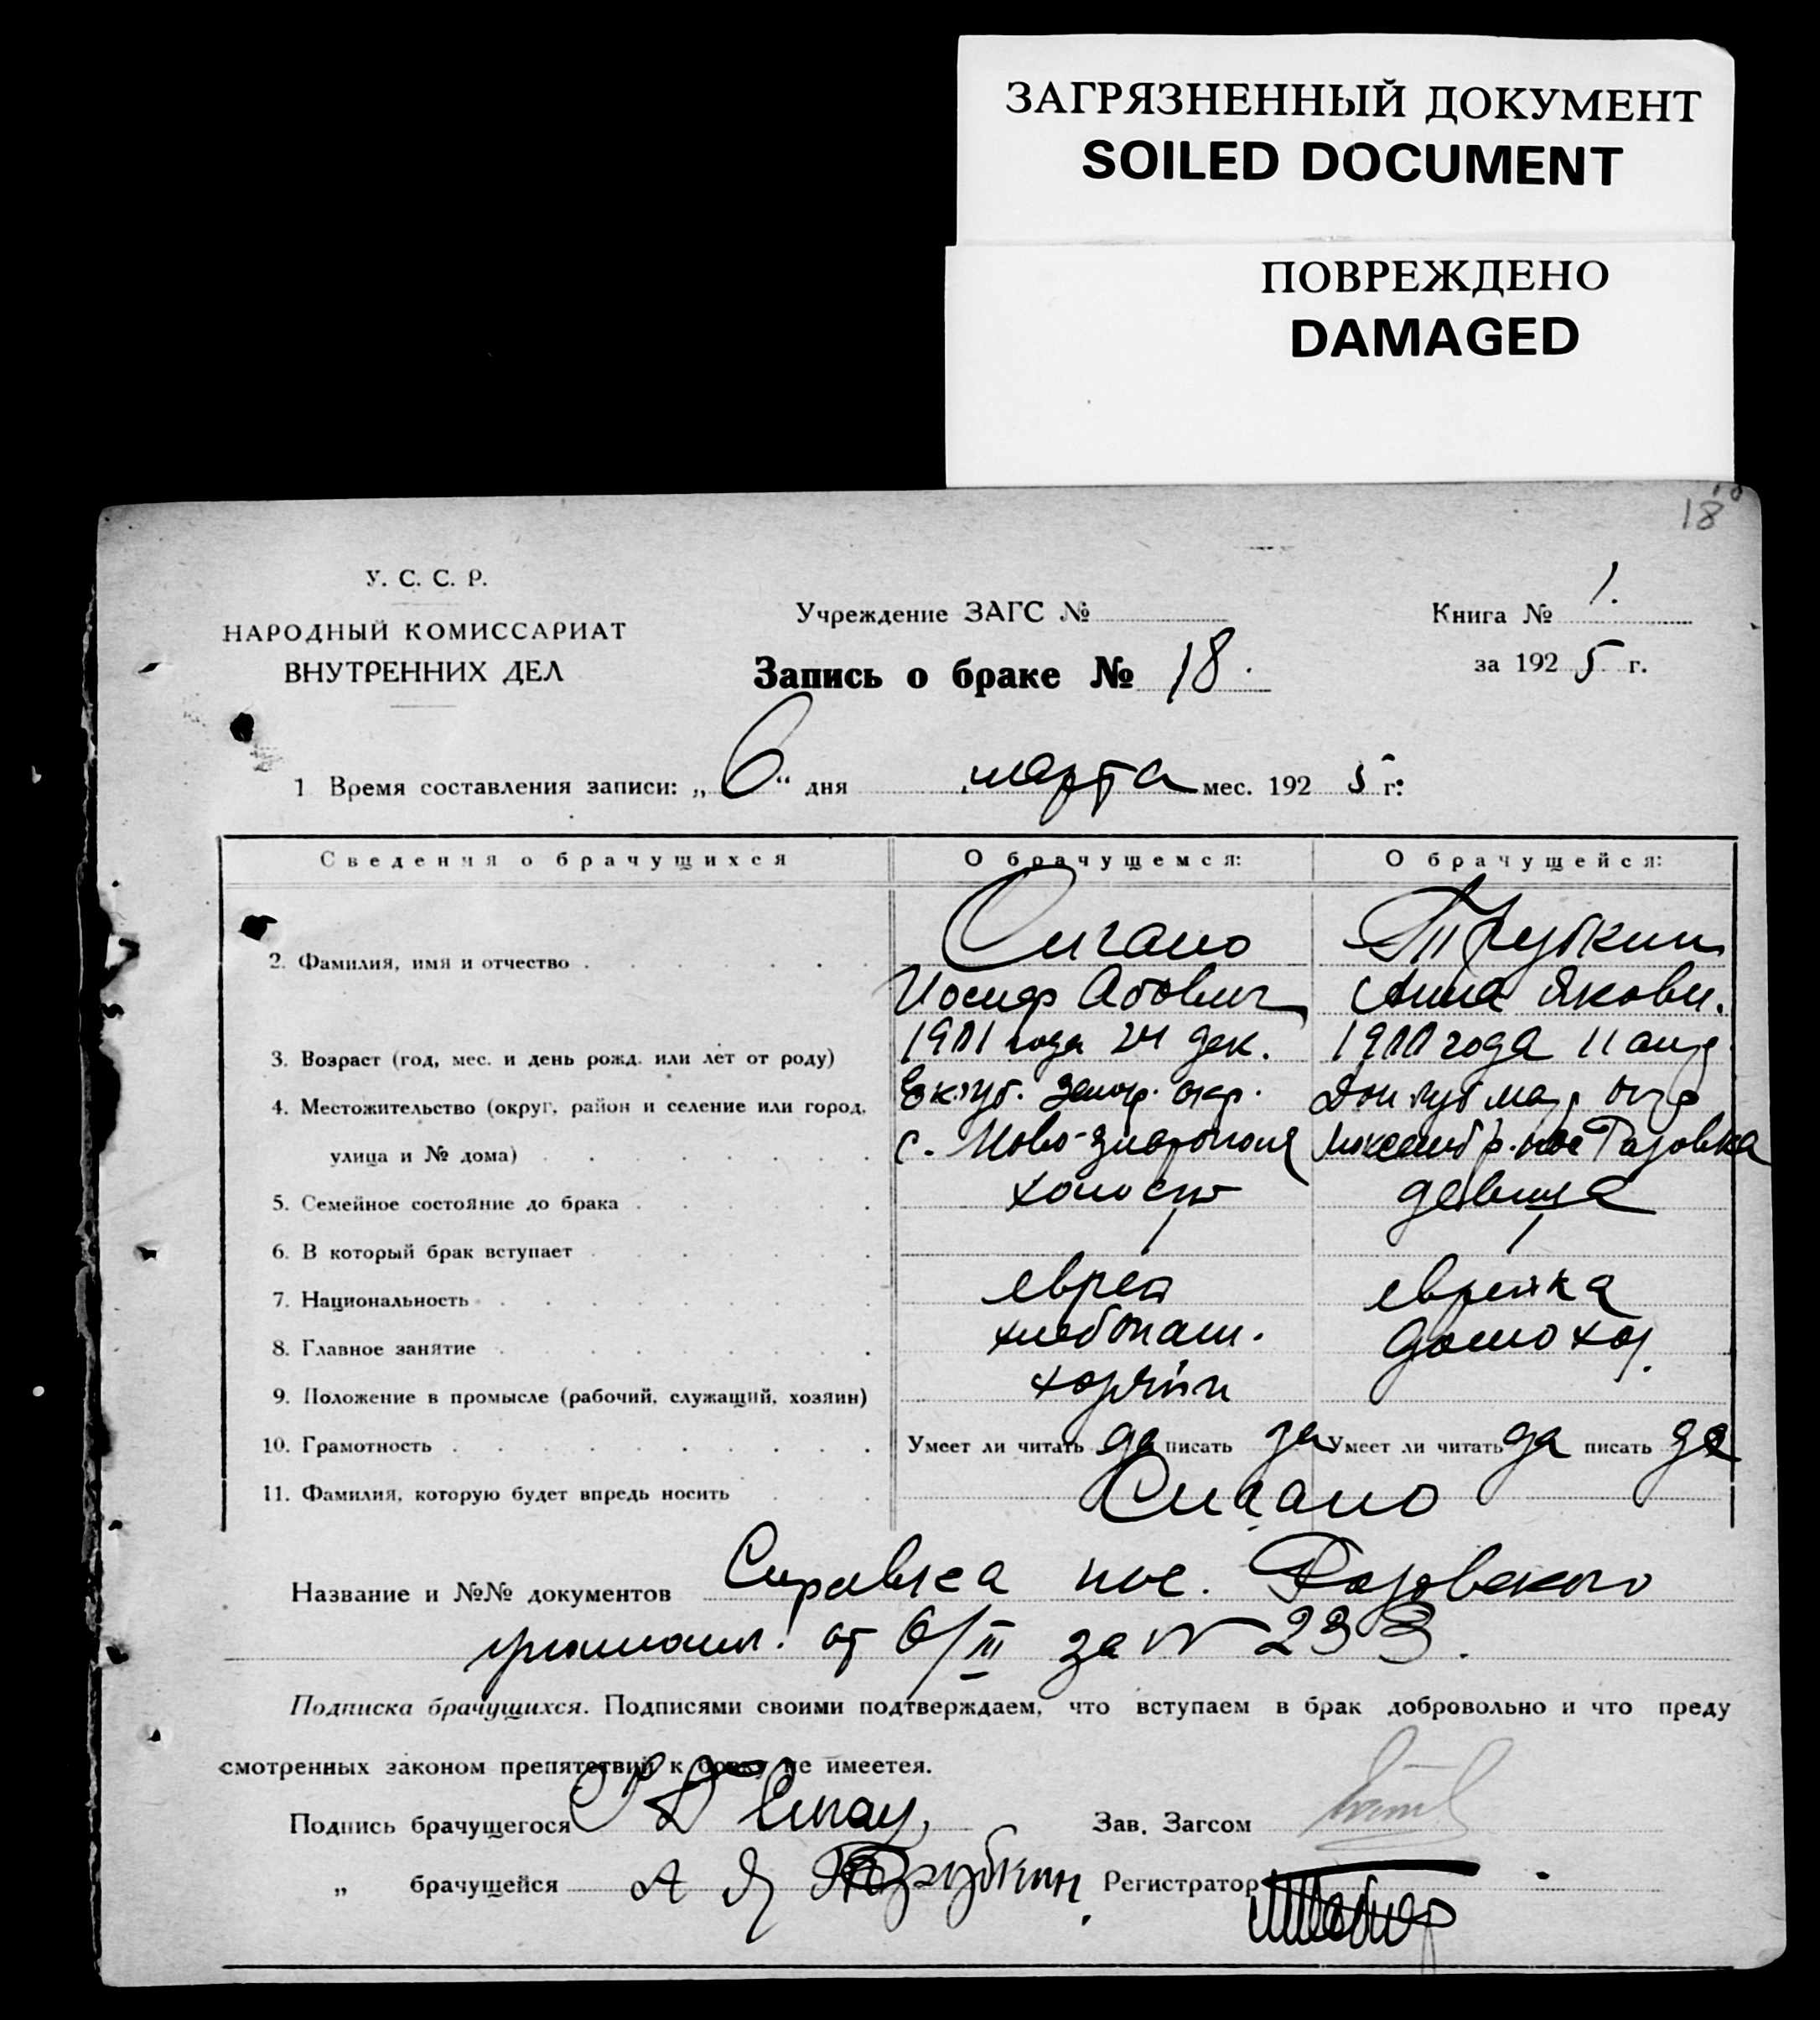 ЗАГРЯЗНЕННЫЙ ДОКУМЕНТ
SOILED DOCUMENT
ПОВРЕЖДЕНО
DAMAGED
18
У. С. С. Р.
НАРОДНЫЙ КОМИССАРИАТ
ВНУТРЕННИХ ДЕЛ
Учреждение ЗАГС №
Запись о браке № 18.
Книга № 1.
за 1925 г.
1 Время составления записи: „6“ дня марта мес. 1925 г.
Сведения о брачущихся О брачущемся: О брачущейся:
2. Фамилия, имя и отчество Сигало Трубкин
Иосиф Абович Анна Яковл.
3. Возраст (год, мес. и день рожд. или лет от роду) 1901 года 24 дек. 1900 года 11 апр
4. Местожительство (округ, район и селение или город, Ек. губ. Запор. окр. Дон губ Мар. окр
улица и № дома) с. Ново-Златополь пос Розовка
5. Семейное состояние до брака холост девица
6. В который брак вступает 1 1
7. Национальность еврей еврейка
8. Главное занятие хлебопаш. домохоз.
9. Положение в промысле (рабочий, служащий, хозяин) хозяин
10. Грамотность Умеет ли читать да писать да Умеет ли читать да писать да
11. Фамилия, которую будет впредь носить Сигало
Название и №№ документов Справка пос. Розовского
от 6/III за № 233.
Подписка брачущихся. Подписями своими подтверждаем, что вступаем в брак добровольно и что преду
смотренных законом препятствий к браку не имеетея.
Подпись брачущегося
Зав. Загсом
„ брачущейся А Я Трубкин.
Регистратор